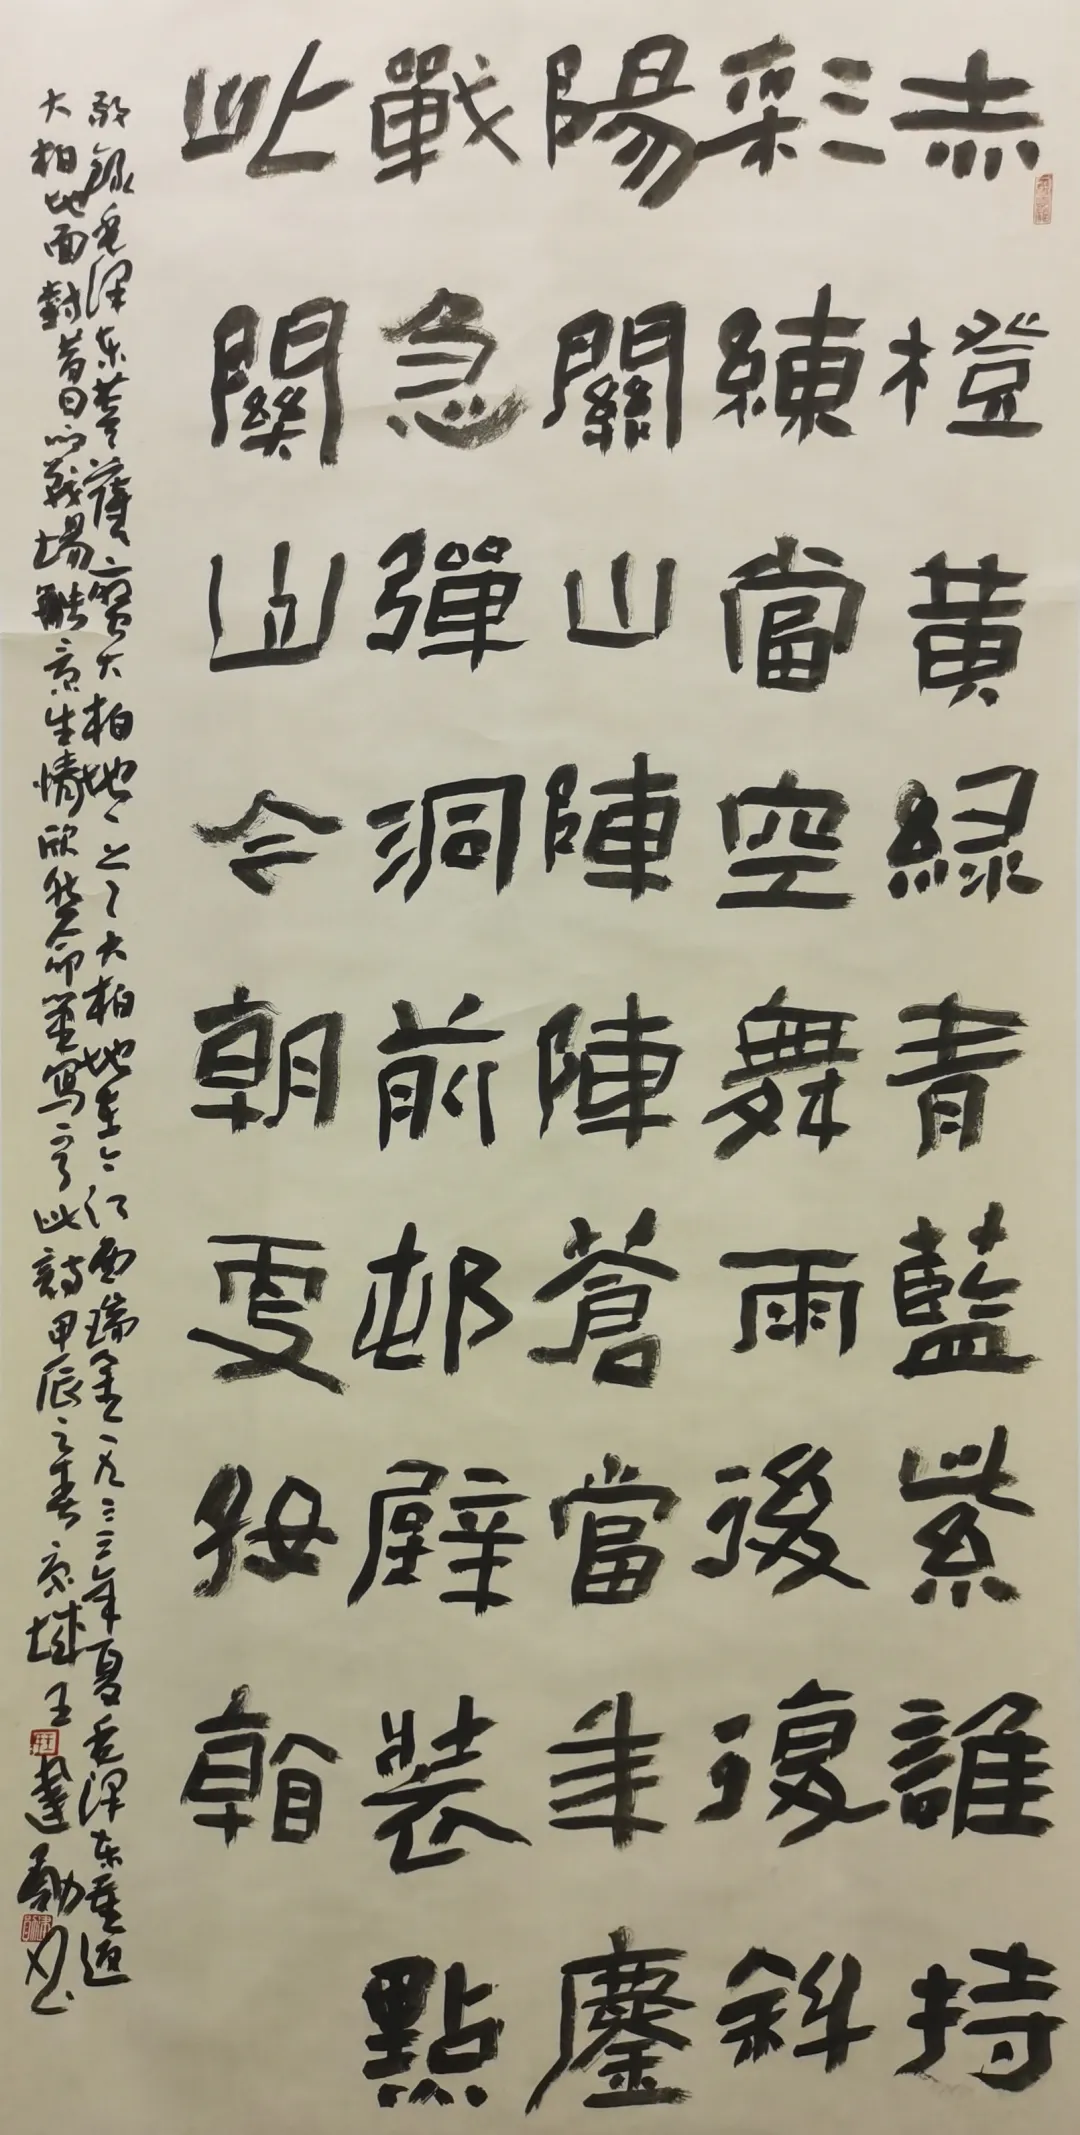 赤橙黄綠青藍紫誰持
彩練當空舞雨後復斜
陽關山陣陣蒼當年鏖
戰急彈洞前邨壁裝點
此關山今朝更好看
敬錄毛澤东菩薩蛮大柏地大柏地在今江西瑞金一九三三年夏毛澤东重返
大柏地面對昔日的戰場触景生情欣然命筆寫了此詩甲辰之春京城王達书